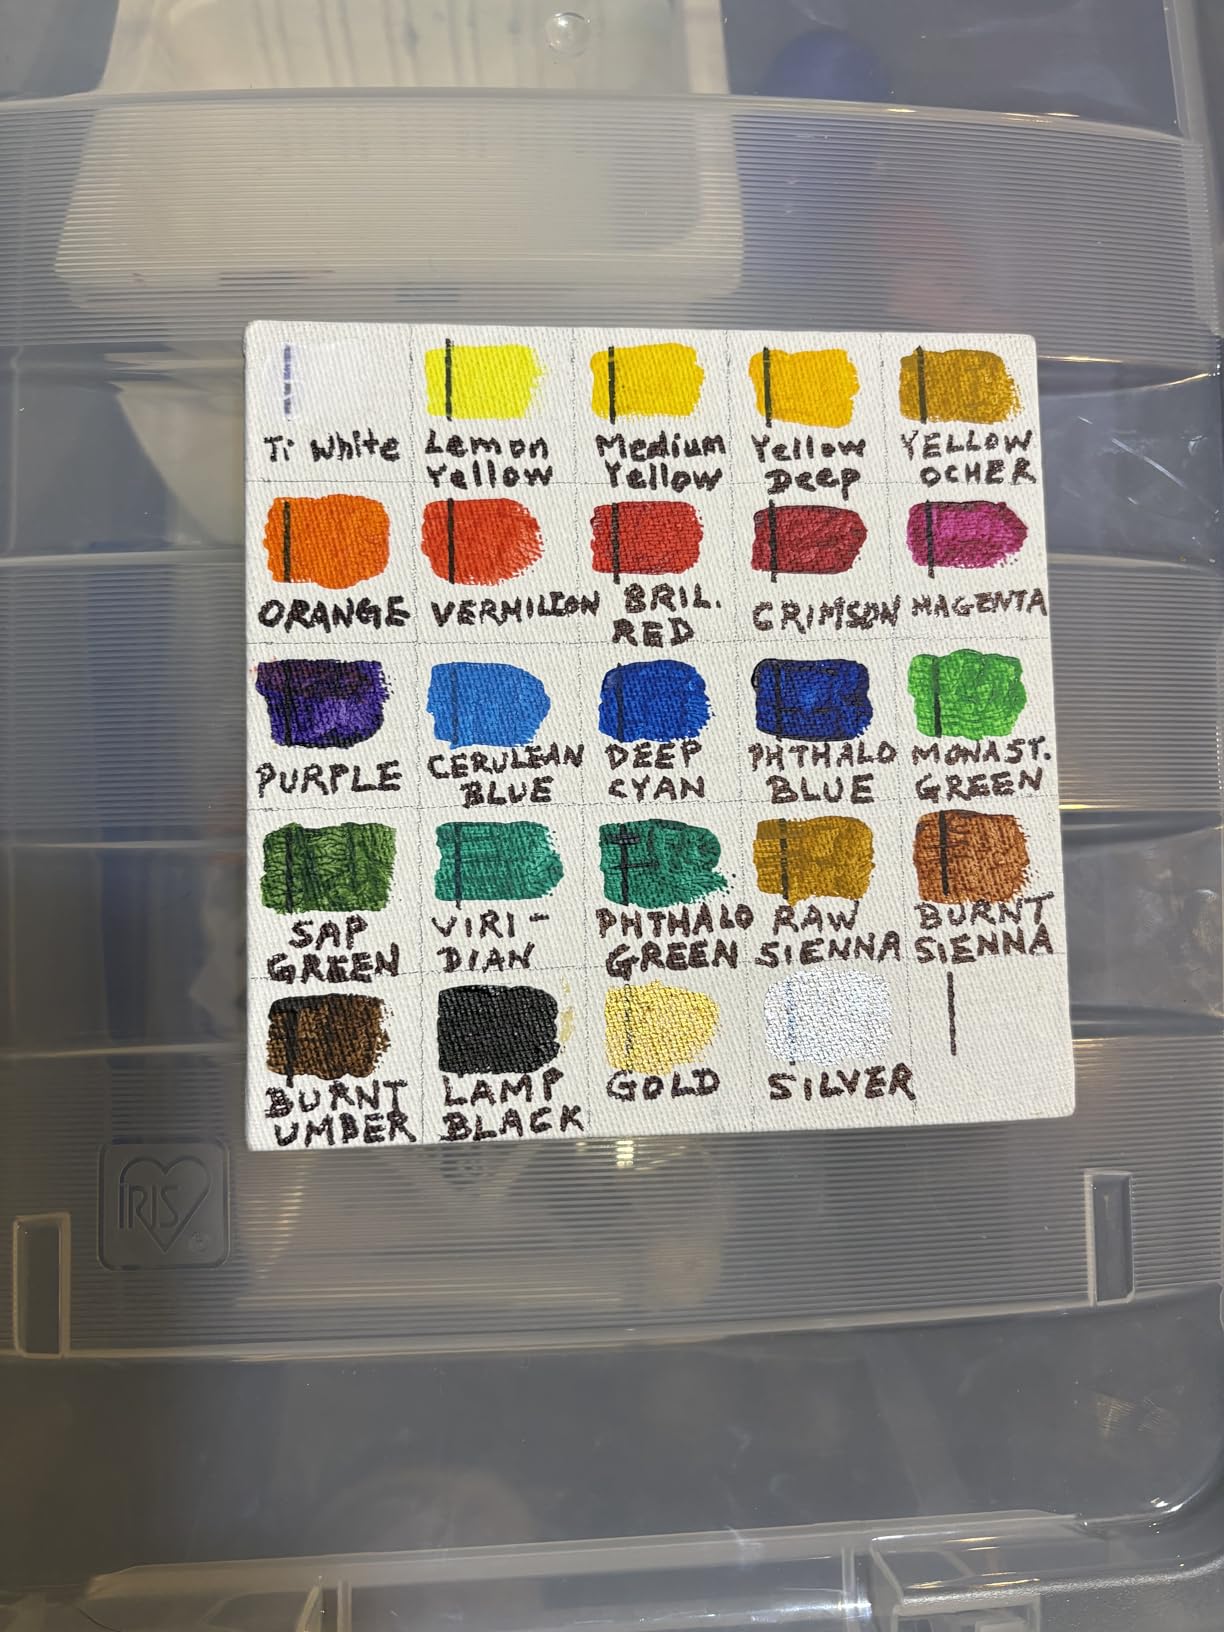 Ti White
Lemon
Yellow
Medium
Yellow
Yellow
Deep
YELLOW
OCHER
ORANGE
VERMILION
BRIL.
RED
CRIMSON
MAGENTA
PURPLE
CERULEAN
BLUE
DEEP
CYAN
PHTHALO
BLUE
MONAST.
GREEN
SAP
GREEN
VIRI-
DIAN
PHTHALO
GREEN
RAW
SIENNA
BURNT
SIENNA
BURNT
UMBER
LAMP
BLACK
GOLD
SILVER
IRIS